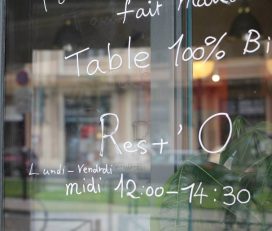 fait
Table 100% Bi
Rest'O
Lundi-Vendredi
midi 12:00-14:30